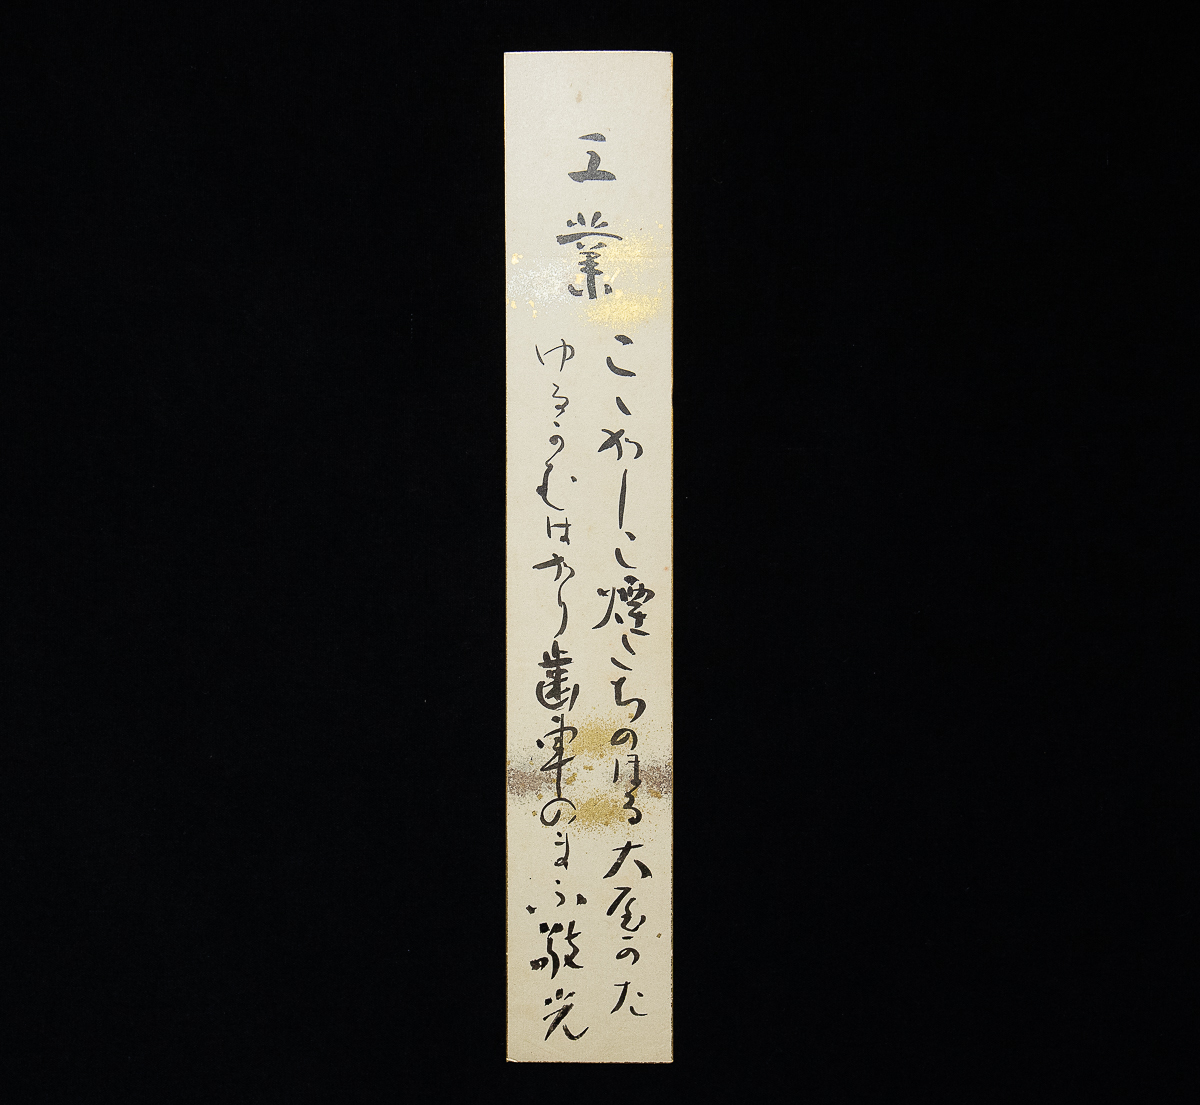 工業
こゝかしこ煙たちのほる大屋のた
ゆるかむはかり歯車のまふ 敬光